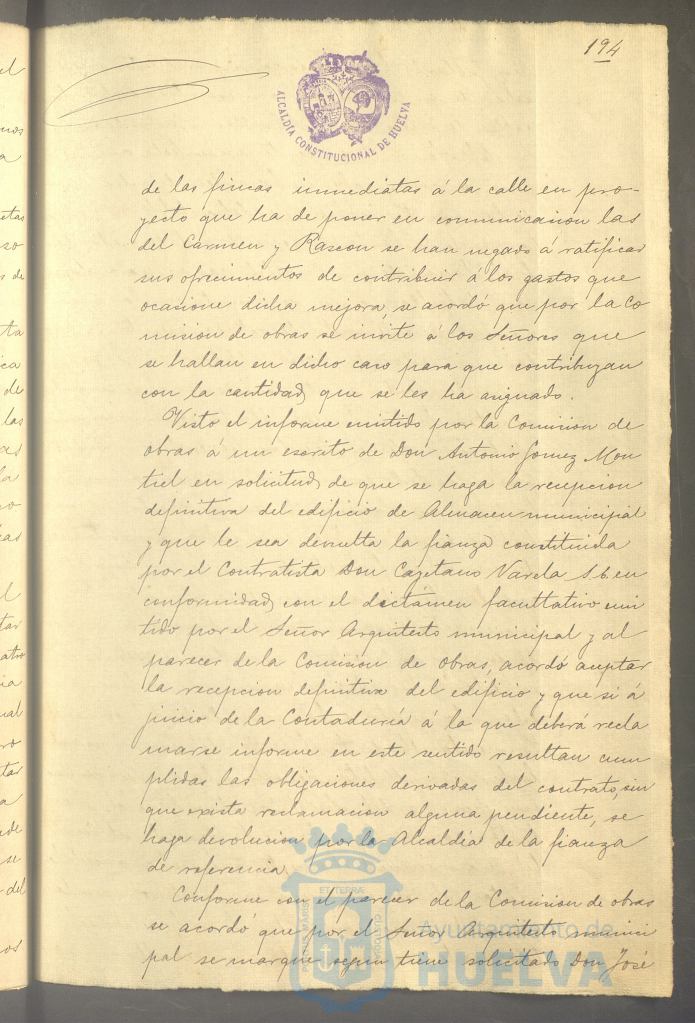 194
ALCALDÍA CONSTITUCIONAL DE HUELVA
de las fincas inmediatas á la calle en pro-
yecto que ha de poner en comunicacion las
del Carmen y Rascon se han negado á ratificar
sus ofrecimientos de contribuir á los gastos que
ocasione dicha mejora, se acordó que por la Co
mision de obras se invite á los Señores que
se hallan en dicho caso para que contribuyan
con la cantidad que se les ha asignado.
Visto el informe emitido por la Comision de
obras á un escrito de Don Antonio Gomez Mon
tiel en solicitud de que se haga la recepcion
definitiva del edificio de Almacen municipal
y que le sea devuelta la fianza constituida
por el Contratista Don Cayetano Varela S. E. en
conformidad con el dictámen facultativo emi
tido por el Señor Arquitecto municipal y al
parecer de la Comision de obras, acordó aceptar
la recepcion definitiva del edificio y que si á
juicio de la Contaduría á la que deberá recla
marse informe en este sentido resultan cum
plidas las obligaciones derivadas del contrato, sin
que exista reclamacion alguna pendiente, se
haga devolucion por la Alcaldía de la fianza
de referencia.
Conforme con el parecer de la Comision de obras
se acordó que por el Señor Arquitecto munici
pal se marque segun tiene solicitado Don José
Ayuntamiento de
HUELVA